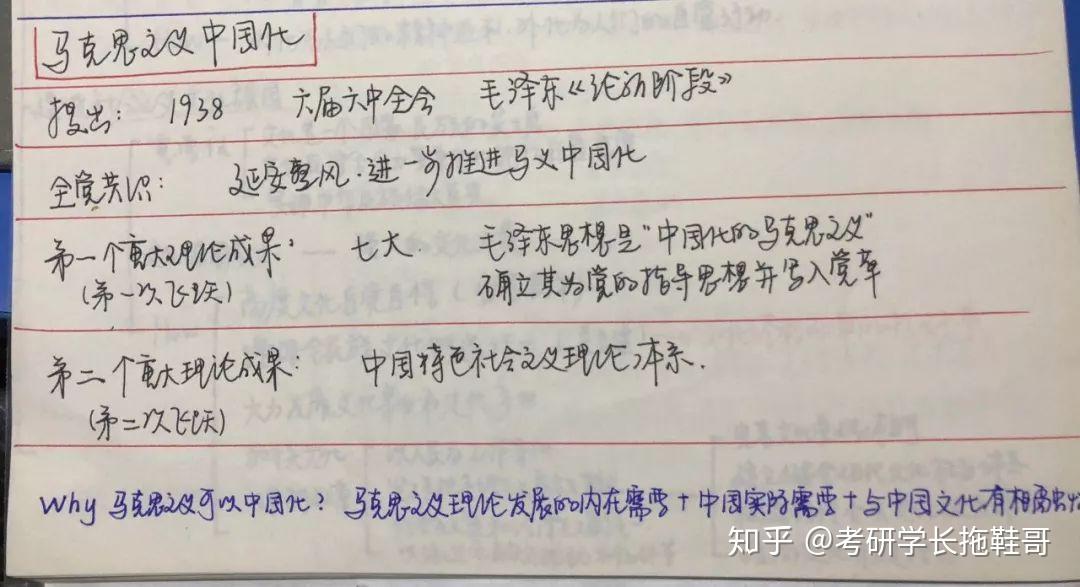 马克思主义中国化
提出: 1938 六届六中全会 毛泽东《论新阶段》
全党共识: 延安整风.进一步推进马义中国化
第一个重大理论成果: 七大 毛泽东思想是“中国化的马克思主义”
(第一次飞跃) 确立其为党的指导思想并写入党章
第二个重大理论成果: 中国特色社会主义理论体系.
(第二次飞跃)
Why 马克思主义可以中国化? 马克思主义理论发展的内在需要+中国实际需要+与中国文化有相融
知乎 @考研学长拖鞋哥